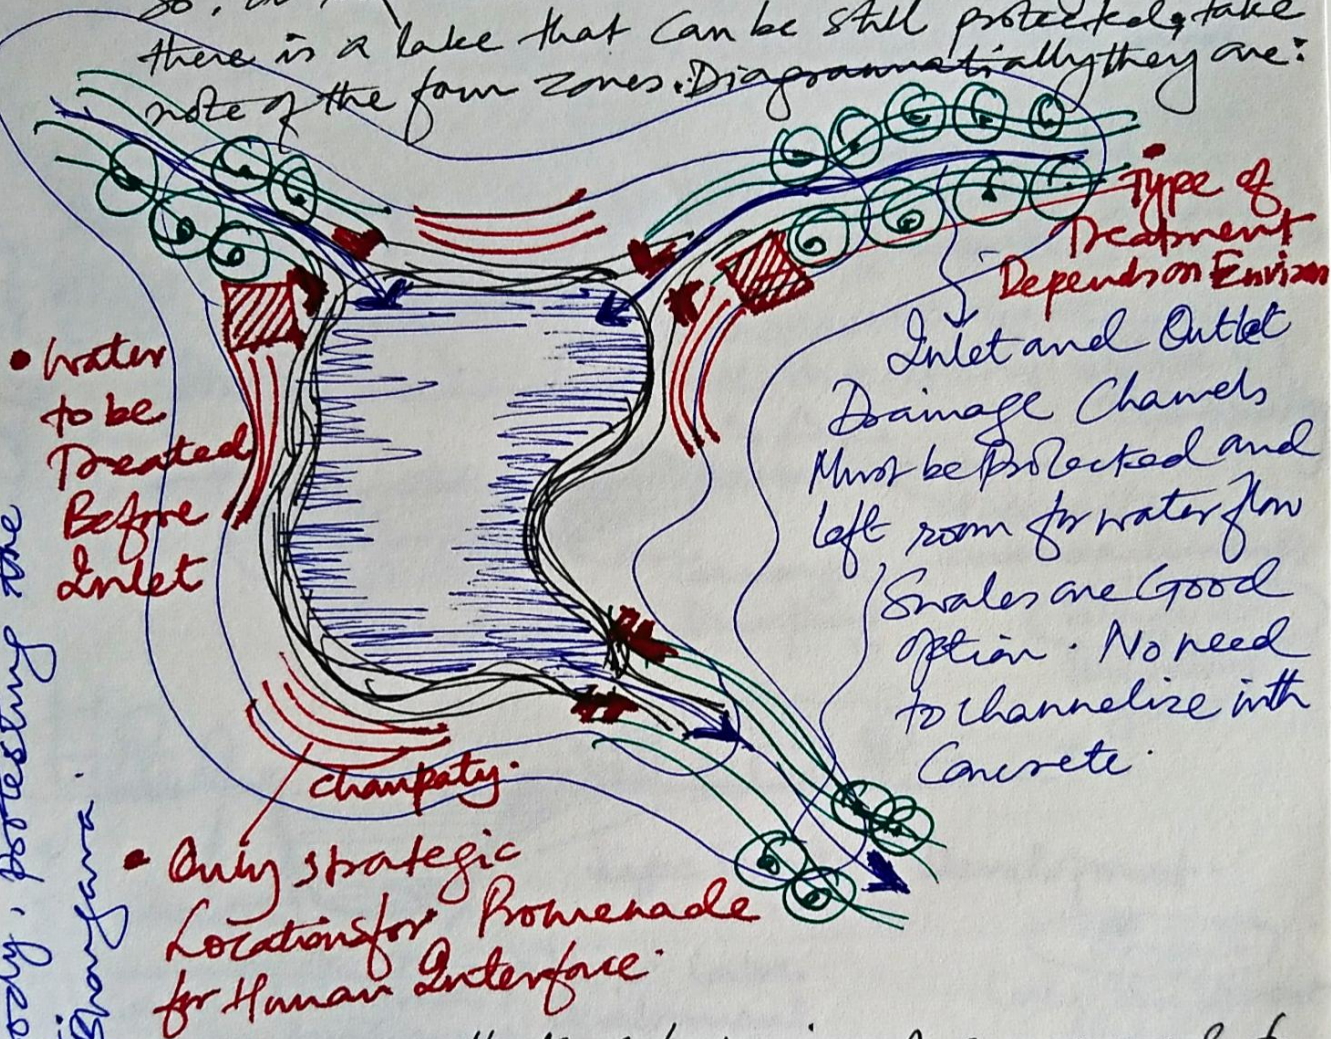 So,
there is a lake that can be still protected, take
note of the four zones. Diagrammatically they are:
• Type of
Treatment
Depends on Environ
Inlet and Outlet
Drainage Channels
Must be Protected and
left room for water flow
Swales are Good
option. No need
to channelize with
Concrete.
• Water
to be
Treated
Before
Inlet
chaupaty.
• Only strategic
Locations for Promenade
for Human Interface.
ody, protesting the